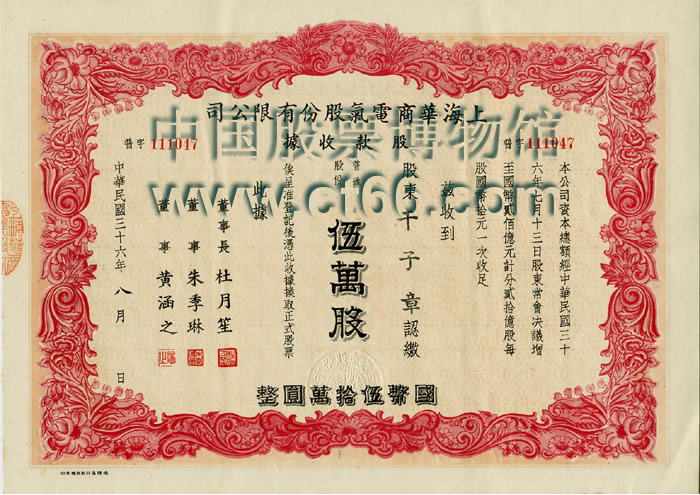 上海華商電氣股份有限公司
股款收據
普字 111047
普字 111047
本公司資本總額經中華民國三十
六年七月十三日股東常會決議增
至國幣貳佰億元計分貳拾億股每
股國幣拾元一次收足
茲收到
股東千子章認繳
普通
股份
伍萬股
俟呈准登記後憑此收據換取正式股票
此據
董事長杜月笙
董事朱季琳
董事黃涵之
中華民國三十六年八月 日
國幣伍拾萬圓整
中国股票博物馆
www.cf60.com